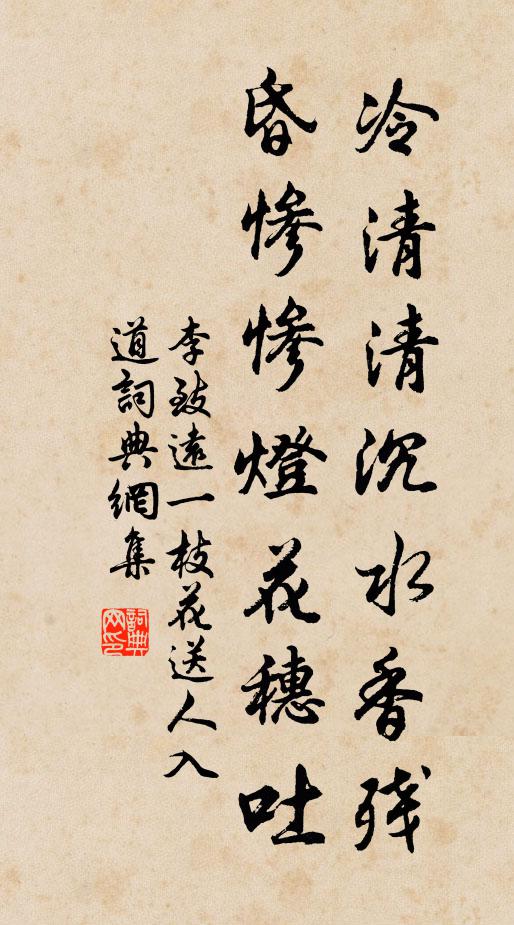 冷清清沉水香残
昏惨惨燈花穗吐
李致遠一枝花送人入
道詞典網集
詞典网印